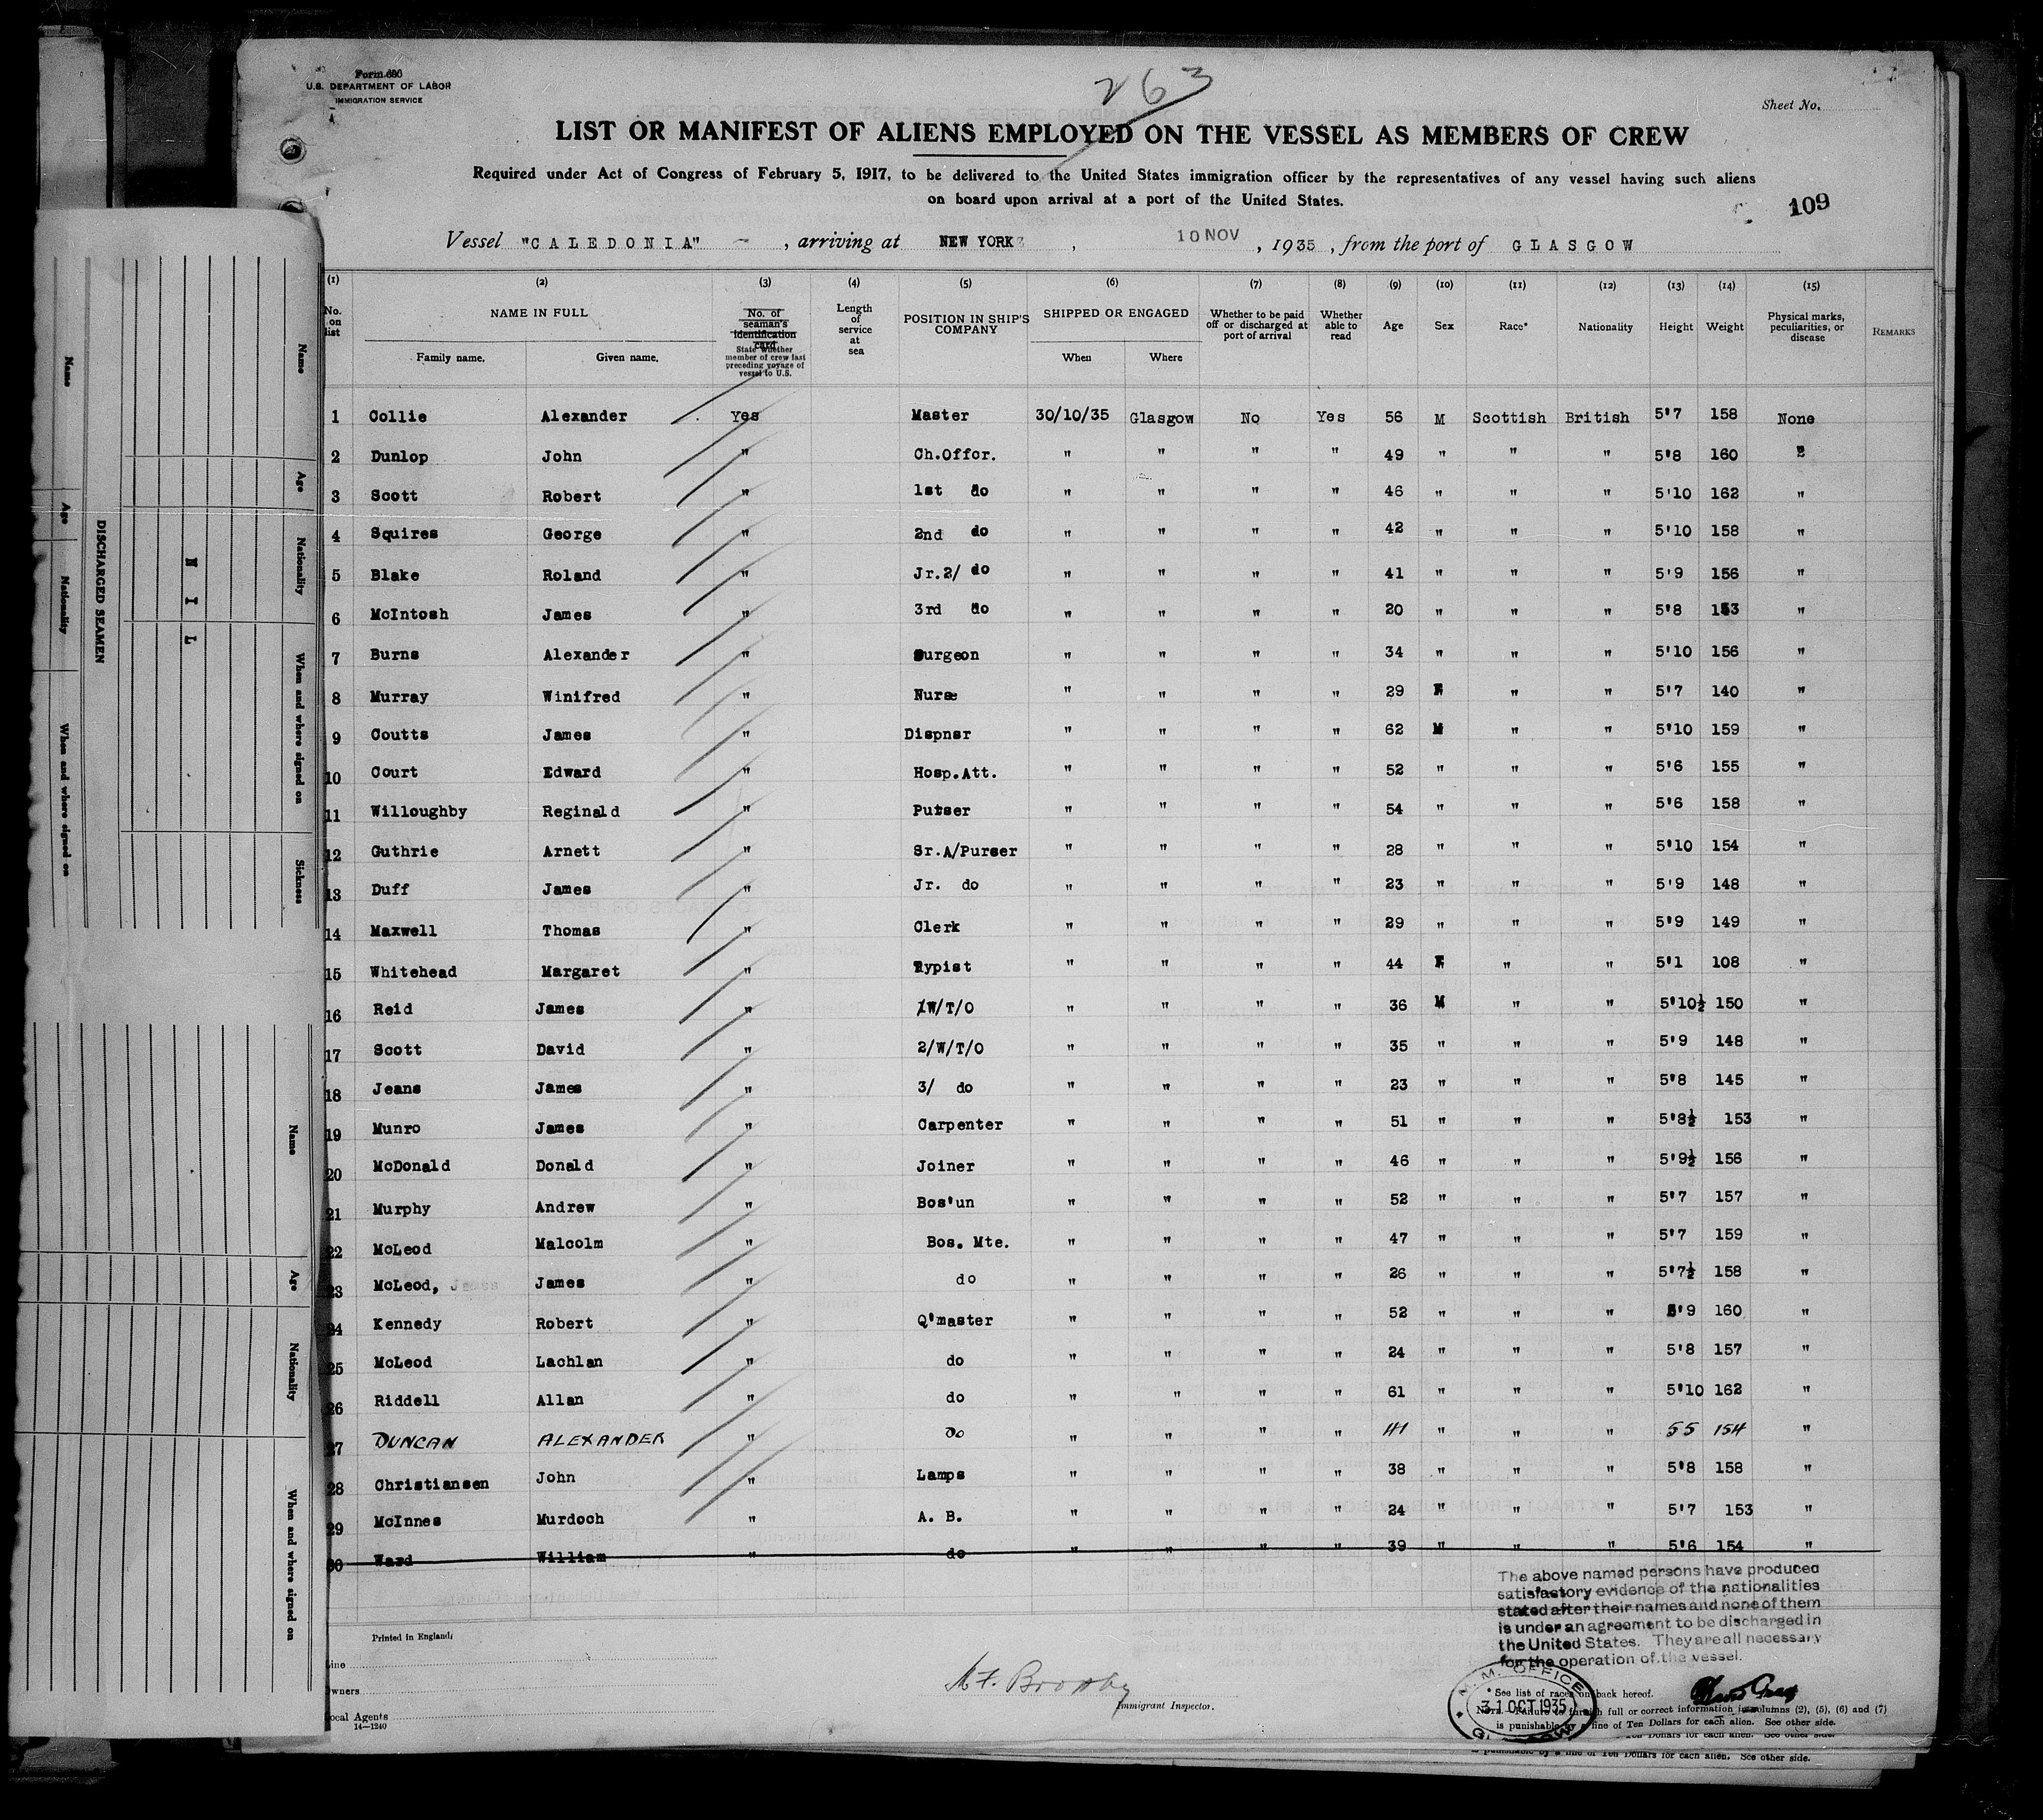 Form 680
U.S. DEPARTMENT OF LABOR
IMMIGRATION SERVICE
263
Sheet No.
LIST OR MANIFEST OF ALIENS EMPLOYED ON THE VESSEL AS MEMBERS OF CREW
Required under Act of Congress of February 5, 1917, to be delivered to the United States immigration officer by the representatives of any vessel having such aliens
on board upon arrival at a port of the United States.
109
Vessel "CALEDONIA" , arriving at NEW YORK , 10 NOV , 1935 , from the port of GLASGOW
(1) (2) (3) (4) (5) (6) (7) (8) (9) (10) (11) (12) (13) (14) (15)
No. on list NAME IN FULL Family name. Given name. No. of seaman's identification card State whether member of crew last preceding voyage of vessel to U.S. Length of service at sea POSITION IN SHIP'S COMPANY SHIPPED OR ENGAGED When Where Whether to be paid off or discharged at port of arrival Whether able to read Age Sex Race* Nationality Height Weight Physical marks, peculiarities, or disease REMARKS
1 Collie Alexander Yes Master 30/10/35 Glasgow No Yes 56 M Scottish British 5'7 158 None
2 Dunlop John " Ch.Offcr. " " " " 49 " " " 5'8 160 "
3 Scott Robert " 1st do " " " " 46 " " " 5'10 162 "
4 Squires George " 2nd do " " " " 42 " " " 5'10 158 "
5 Blake Roland " Jr.2/ do " " " " 41 " " " 5'9 156 "
6 McIntosh James " 3rd do " " " " 20 " " " 5'8 153 "
7 Burns Alexander " Surgeon " " " " 34 " " " 5'10 156 "
8 Murray Winifred " Nurse " " " " 29 F " " 5'7 140 "
9 Coutts James " Dispnsr " " " " 62 M " " 5'10 159 "
10 Court Edward " Hosp.Att. " " " " 52 " " " 5'6 155 "
11 Willoughby Reginald " Purser " " " " 54 " " " 5'6 158 "
12 Guthrie Arnett " Sr.A/Purser " " " " 28 " " " 5'10 154 "
13 Duff James " Jr. do " " " " 23 " " " 5'9 148 "
14 Maxwell Thomas " Clerk " " " " 29 " " " 5'9 149 "
15 Whitehead Margaret " Typist " " " " 44 F " " 5'1 108 "
16 Reid James " 1W/T/O " " " " 36 M " " 5'10½ 150 "
17 Scott David " 2/W/T/O " " " " 35 " " " 5'9 148 "
18 Jeans James " 3/ do " " " " 23 " " " 5'8 145 "
19 Munro James " Carpenter " " " " 51 " " " 5'8½ 153 "
20 McDonald Donald " Joiner " " " " 46 " " " 5'9½ 156 "
21 Murphy Andrew " Bos'un " " " " 52 " " " 5'7 157 "
22 McLeod Malcolm " Bos. Mte. " " " " 47 " " " 5'7 159 "
23 McLeod, James James " do " " " " 26 " " " 5'7½ 158 "
24 Kennedy Robert " Q'master " " " " 52 " " " 5'9 160 "
25 McLeod Lachlan " do " " " " 24 " " " 5'8 157 "
26 Riddell Allan " do " " " " 61 " " " 5'10 162 "
27 DUNCAN ALEXANDER " Do " " " " 41 " " " 55 154 "
28 Christiansen John " Lamps " " " " 38 " " " 5'8 158 "
29 McInnes Murdoch " A. B. " " " " 24 " " " 5'7 153 "
30 Ward William " do " " " " 39 " " " 5'6 154 "
The above named persons have produced
satisfactory evidence of the nationalities
stated after their names and none of them
is under an agreement to be discharged in
the United States. They are all necessary
for the operation of the vessel.
Printed in England
Line
Owners
Local Agents
14—1240
Immigrant Inspector.
M.M. OFFICE
31 OCT 1935
GLASGOW
*See list of races on back hereof.
NOTE.—Failure to furnish full or correct information in columns (2), (5), (6) and (7)
is punishable by a fine of Ten Dollars for each alien. See other side.
Ten Dollars for each alien. See other side.
is punishable by a fine of Ten Dollars for each alien. See other side.
DISCHARGED SEAMEN
Name Age Nationality When and where signed on
Name Age Nationality When and where signed on Sickness
NIL
Name Age Nationality When and where signed on